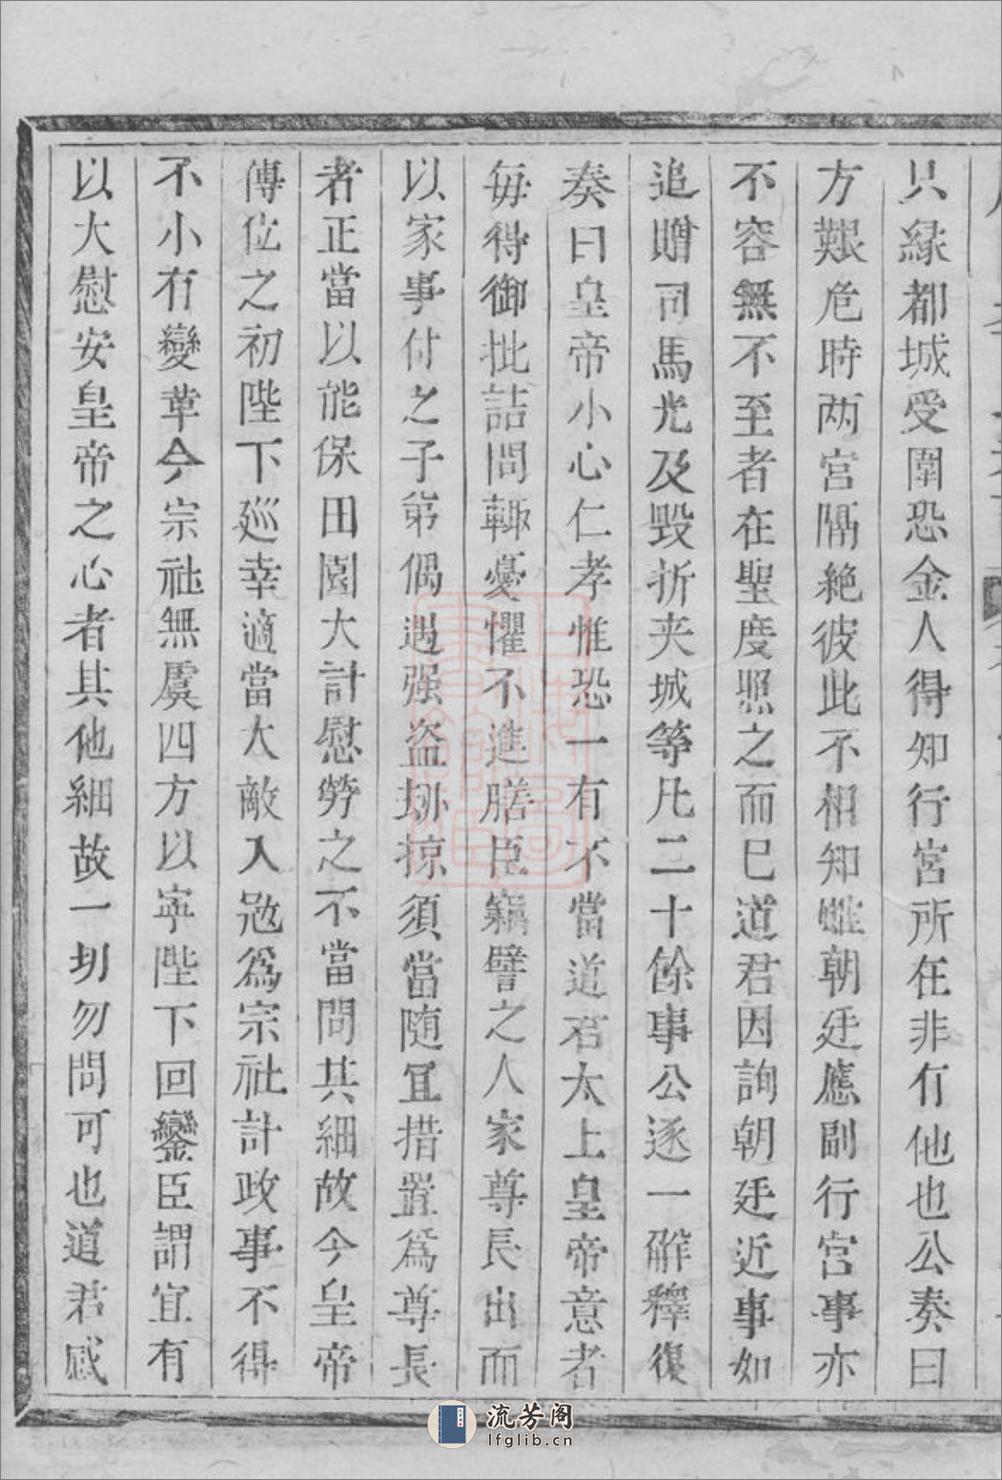 只緣都城受圍恐金人得知行宮所在非有他也公奏曰
方艱危時两宮隔絶彼此不相知雖朝廷應副行宮事亦
不容無不至者在聖度照之而巳道君因詢朝廷近事如
追贈司馬光及毀折夾城等凡二十餘事公逐一觧釋復
奏曰皇帝小心仁孝惟恐一有不當道君太上皇帝意者
毎得御批詰問輙憂懼不進膳臣竊譬之人家尊長出而
以家事付之子弟偶遇强盜刼掠須當随冝措置爲尊長
者正當以能保田園大計慰勞之不當問其細故今皇帝
傳位之初陛下廵幸適當大敵入㓂爲宗社計政事不得
不小有變革今宗社無虞四方以寧陛下回鑾臣謂宜有
以大慰安皇帝之心者其他細故一切勿問可也道君感
流芳阁
lfglib.cn